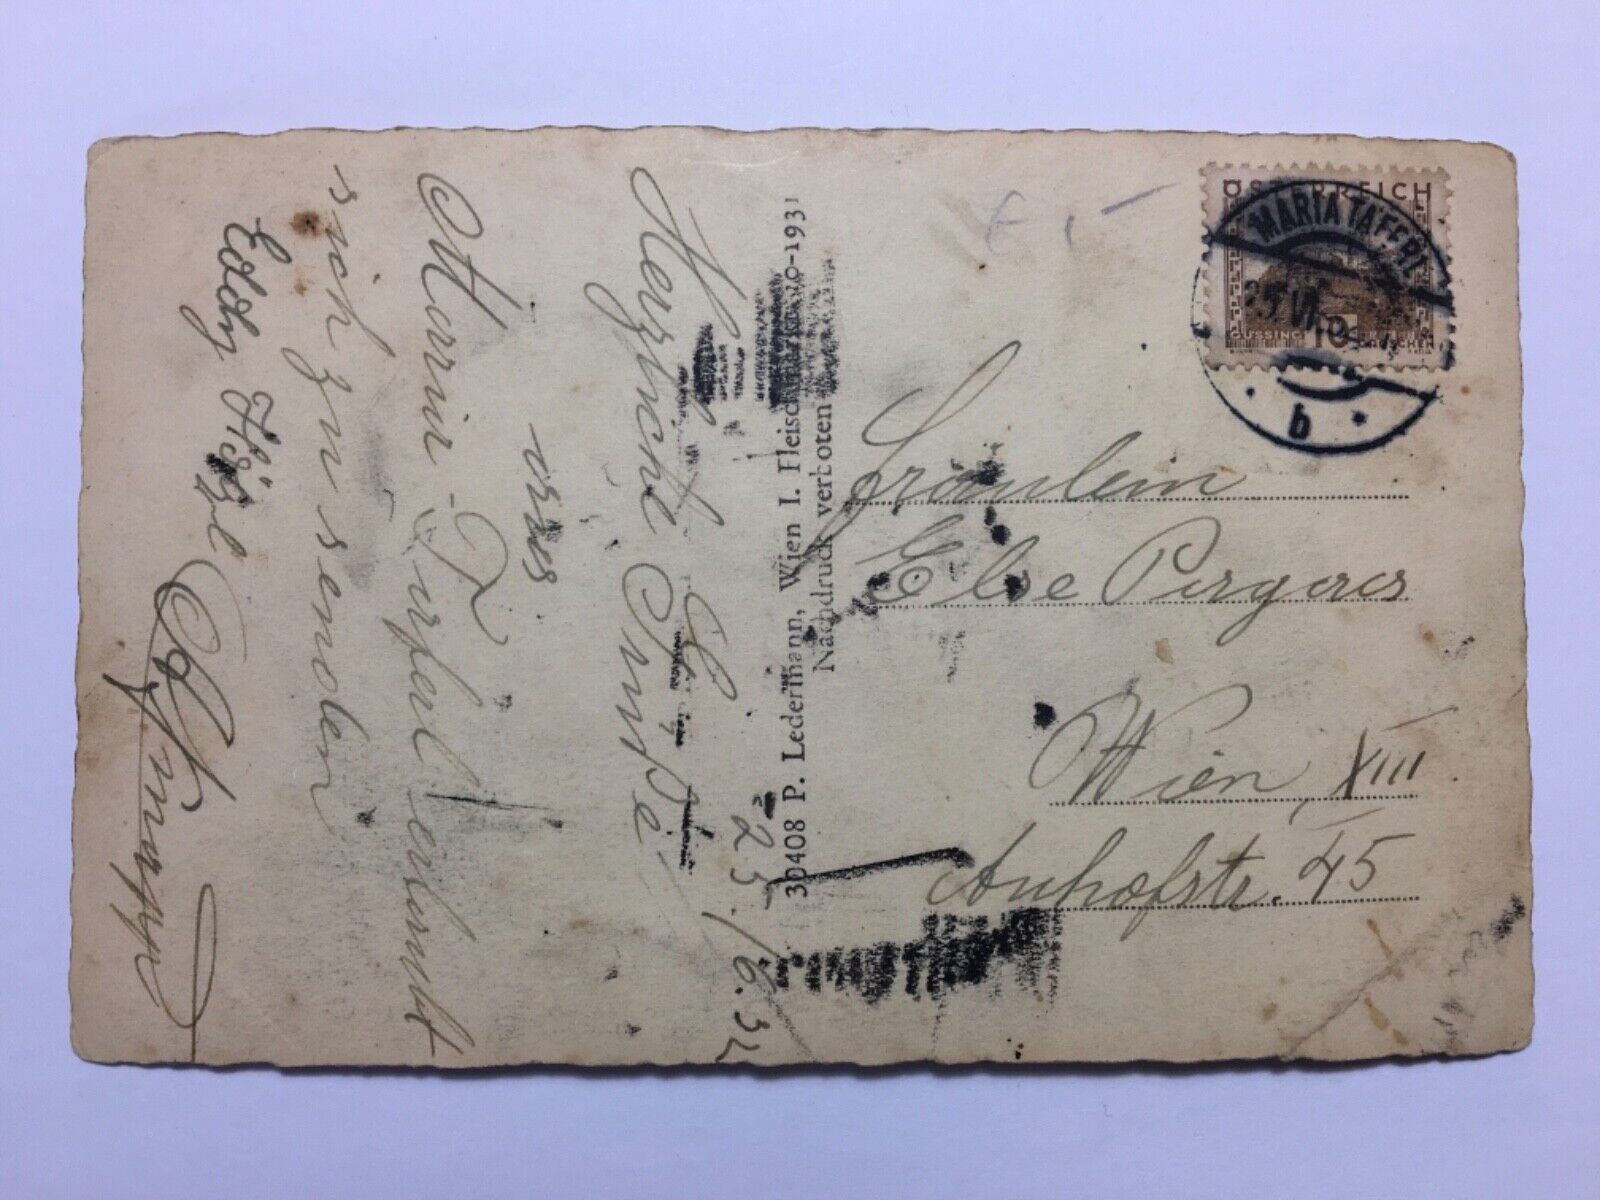 25./6.32
Herzliche Grüße
aus
Maria-Taferl erlaubt
sich zu senden
Eddy
30408 P. Ledermann, Wien I. Fleischmarkt 20-1931
Nachdruck verboten
ÖSTERREICH
GÜSSING
10
GROSCHEN
MARIA TAFERL
VI
b
Fräulein
Else Pirgerer
Wien, XIII
Auhofstr. 45